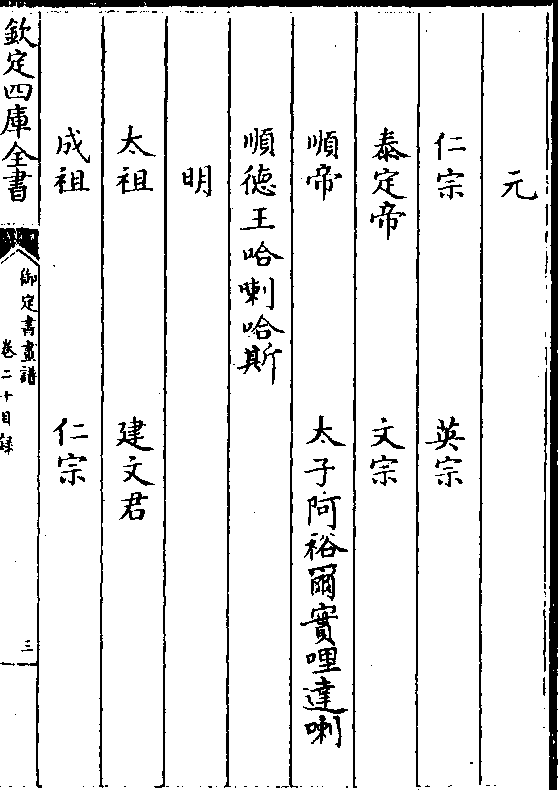 元
仁宗 英宗
泰定帝 文宗
順帝 太子阿裕爾實哩達喇
順德王哈喇哈斯
明
太祖 建文君
成祖 仁宗
欽定四庫全書 御定書畫譜 卷二十目録 三